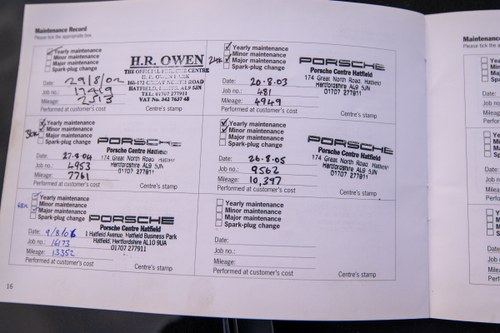 Maintenance Record
Please tick the appropriate box.
Yearly maintenance
Minor maintenance
Major maintenance
Spark-plug change
H.R. OWEN
Date: 29/8/02
Job no.:
Mileage: 2513
VAT No. 342 7637 48
Performed at customer's cost
Centre's stamp
Yearly maintenance
Minor maintenance
Major maintenance
Spark-plug change
PORSCHE
Porsche Centre Hatfield
174 Great North Road, Hatfield
Hertfordshire AL9 5JN
01707 277911
Date: 20.8.03
Job no.: 481
Mileage: 4949
Performed at customer's cost
Centre's stamp
Yearly maintenance
Minor maintenance
Major maintenance
Spark-plug change
PORSCHE
Porsche Centre Hatfield
174 Great North Road Hatfield
Hertfordshire AL9 5JN
01707 277911
Date: 27.9.04
Job no.: 4953
Mileage: 7761
Performed at customer's cost
Centre's stamp
Yearly maintenance
Minor maintenance
Major maintenance
Spark-plug change
PORSCHE
Porsche Centre Hatfield
174 Great North Road, Hatfield
Hertfordshire AL9 5JN
01707 277911
Date: 26.8.05
Job no.: 9562
Mileage: 10,397
Performed at customer's cost
Centre's stamp
Yearly maintenance
Minor maintenance
Major maintenance
Spark-plug change
PORSCHE
Porsche Centre Hatfield
1 Hatfield Avenue, Hatfield Business Park
Hatfield, Hertfordshire AL10 9UA
01707 277911
Date: 9/8/06
Job no.: 16173
Mileage: 13352
Performed at customer's cost
Centre's stamp
Yearly maintenance
Minor maintenance
Major maintenance
Spark-plug change
Date:
Job no.:
Mileage:
Performed at customer's cost
Centre's stamp
16